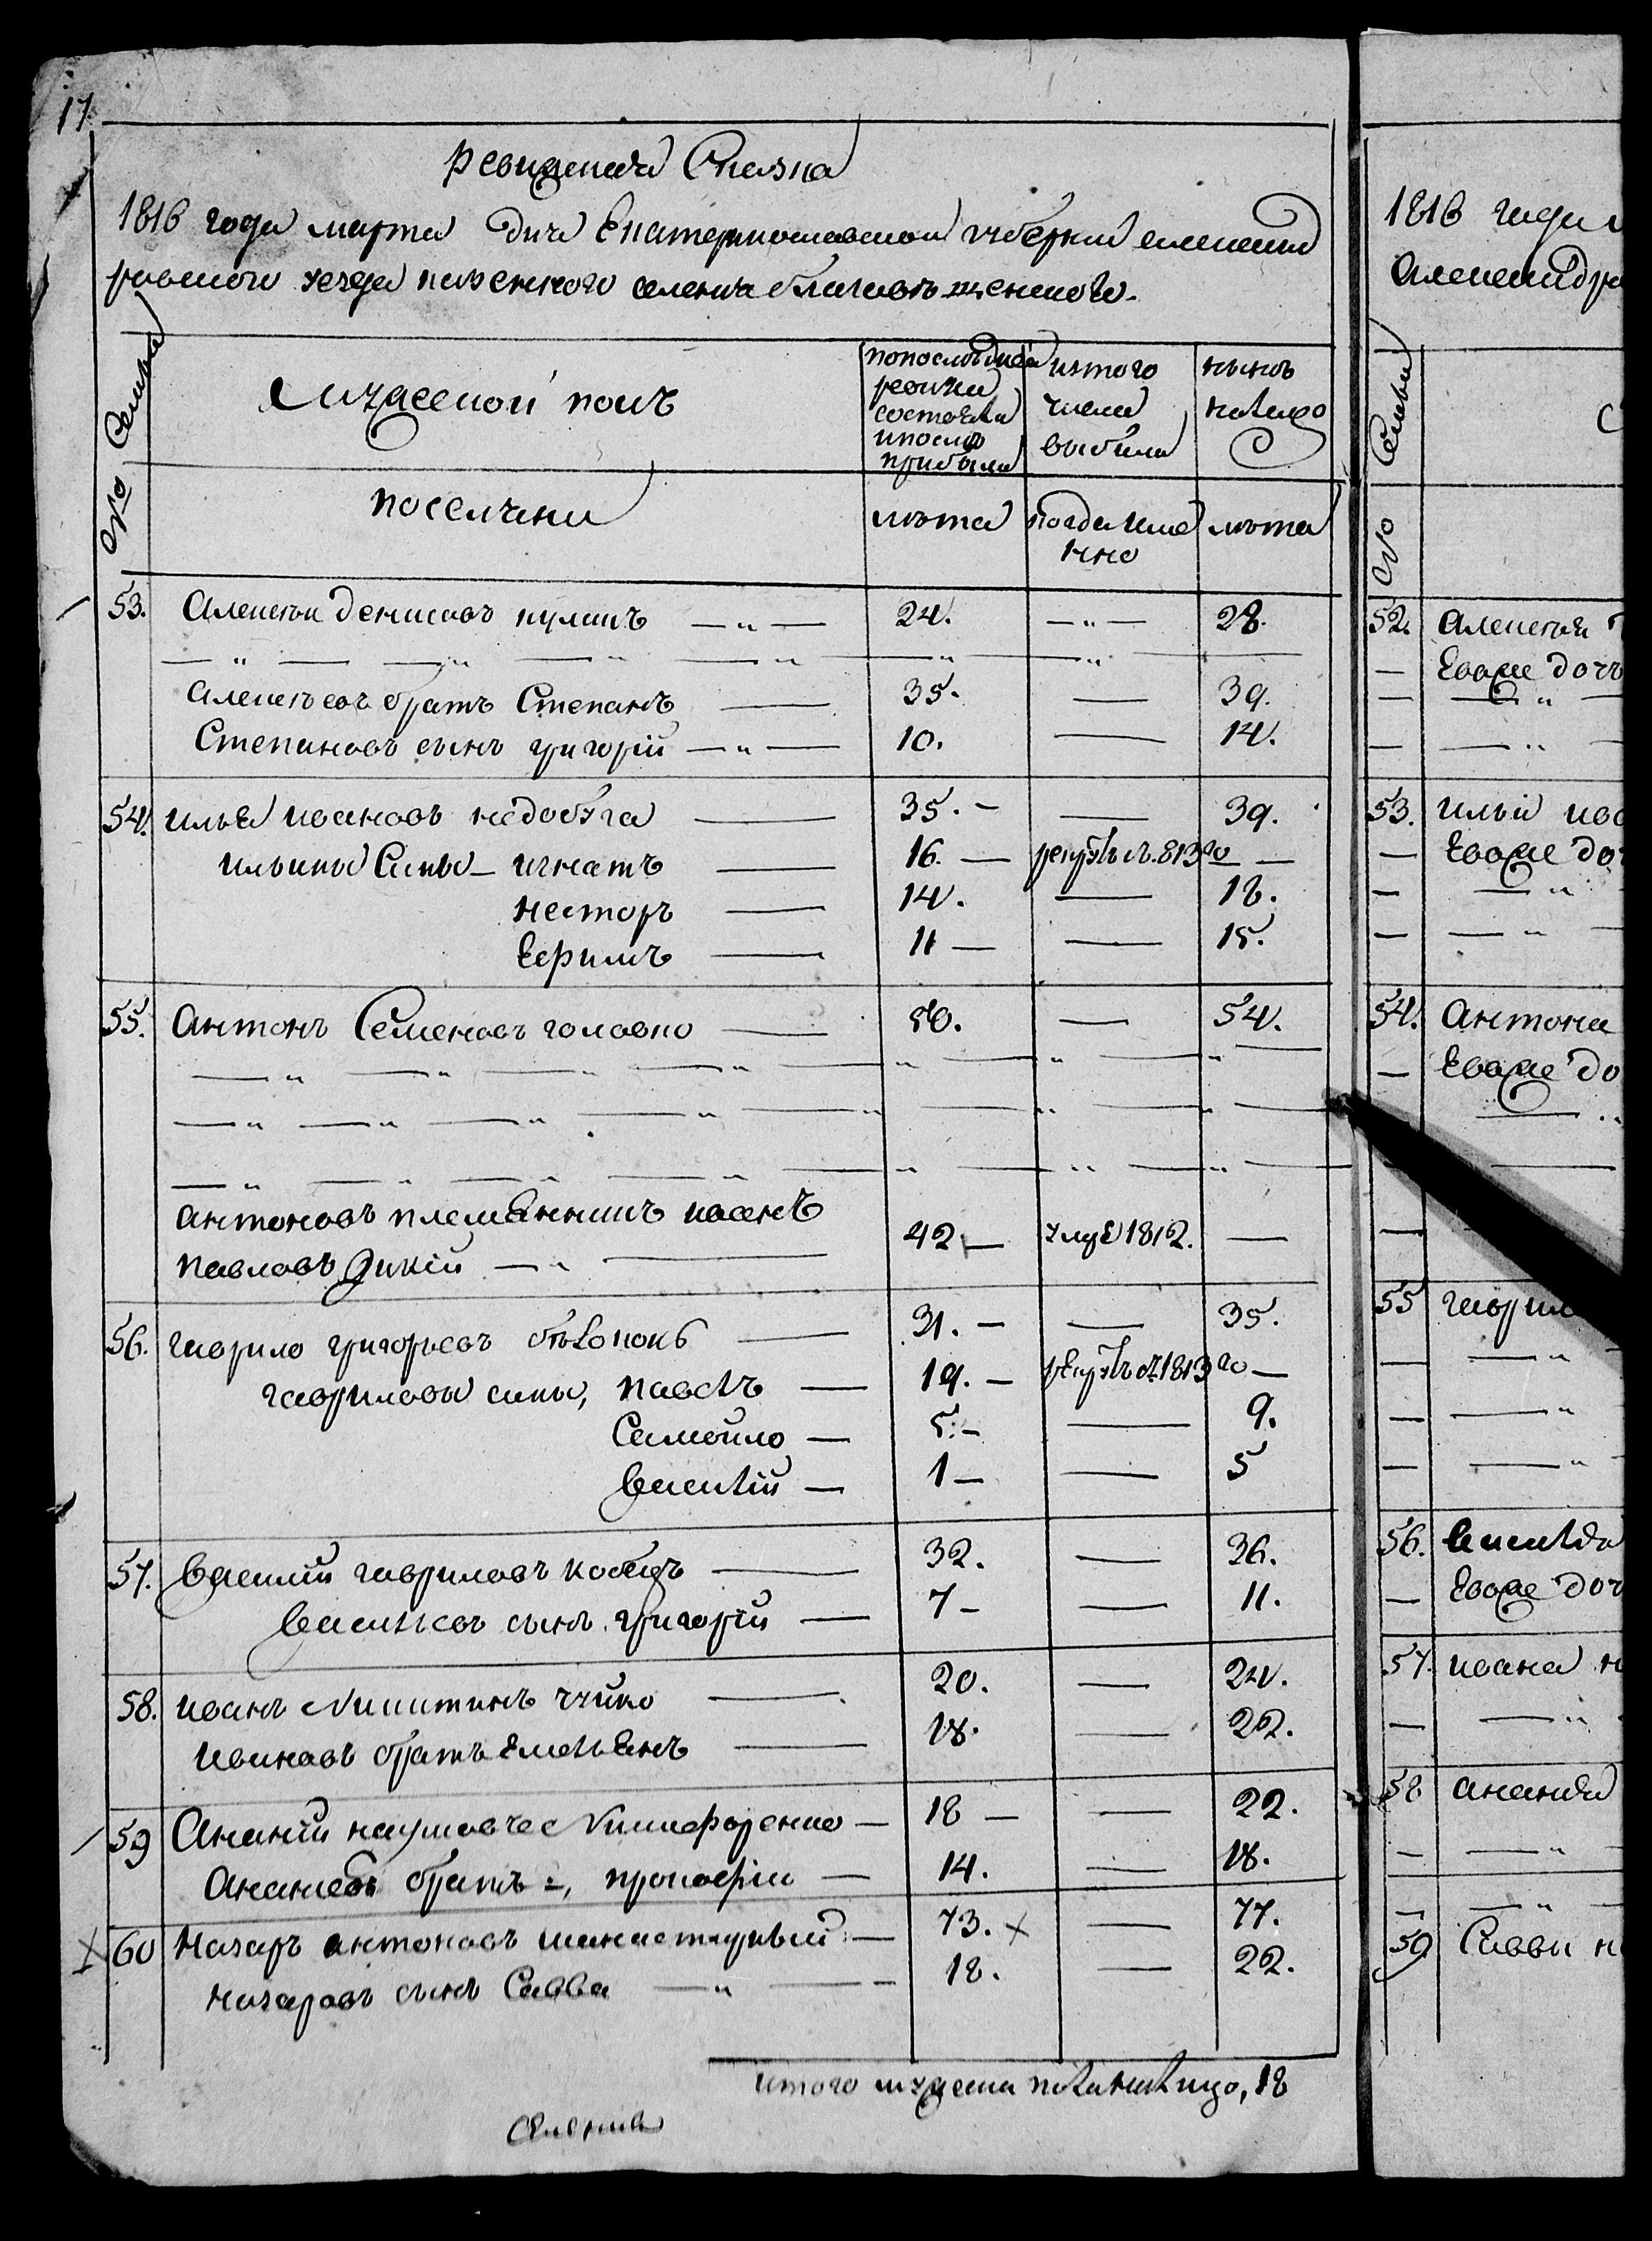 17.
Ревизская Сказка
1816 года марта дня Екатеринославской губернии александ
ровского уезда казенного селения благовѣщенского.
№ Семьи
Мужеской полъ
попослѣдней ревизии состояли и послѣ прибыли
изтого числа выбыли
нынѣ налицо
поселяни
лѣта
когда именно
лѣта
53. Алексѣй денисовъ кулишъ — " — 24. — " — 28.
Алексѣевъ братъ Степанъ — 35. — 39.
Степановъ сынъ григорій — " — 10. — 14.
54. илья ивановъ недобуга — 35. — — 39.
ильины Сины — игнатъ — 16. — рекрутъ въ 813го —
несторъ — 14. — 18.
Ефимъ — 11 — — 15.
55. Антонъ Семеновъ головко — 50. — 54.
антоновъ племянникъ иванъ
павловъ дикій — " — 42 — умре 1812. —
56. гаврило григорьевъ бѣлоконь — 31. — — 35.
гавриловы сины, павелъ — 19. — рекрутъ 1813го —
Самойло — 5. — — 9.
Василій — 1 — — 5
57. Василій гавриловъ кобецъ — 32. — 36.
Васильевъ сынъ григорій — 7 — — 11.
58. иванъ Никитинъ чуйко — 20. — 24.
ивановъ братъ Емельянъ — 18. — 22.
59 Ананій наумовъ Никифоренко — 18 — — 22.
Ананіевъ братъ =, прокофій — 14. — 18.
60 Назаръ антоновъ — 73. × — 77.
назаровъ сынъ Савва — " — 18. — 22.
итого мужеска пола налицо, 18
1816 года
Александро
№ Семьи
52. Алексѣя
— Евоже дочь
53. ильи ива
— Евоже до
54. Антона
— Евоже до
55 гаврил
56. Василья
— Евоже доч
57. ивана н
58 ананія
59 Саввы н